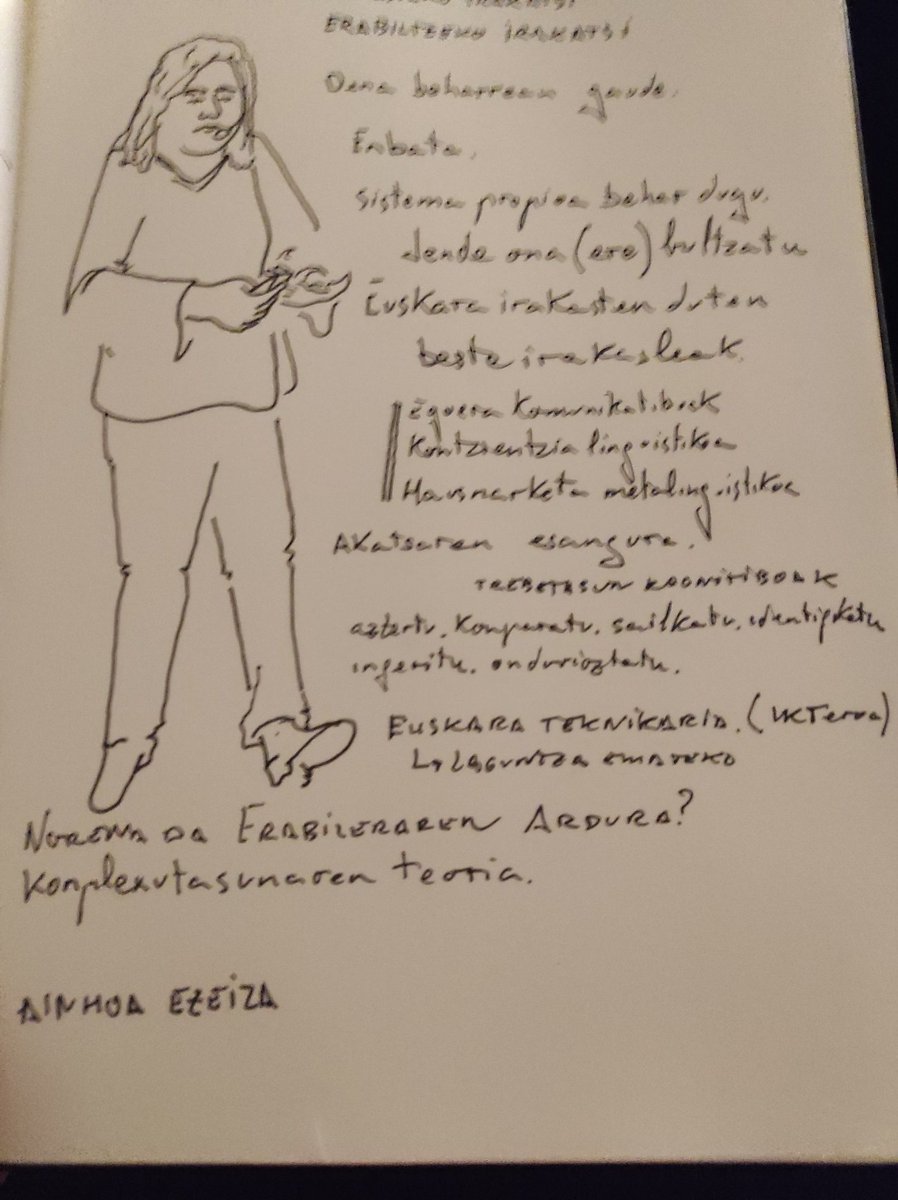 IRAKATSI
ERABILTZEKO IRAKATSI
Dena beharrean gaude.
Enbata.
Sistema propioa behar dugu.
Jende ona (ere) bultzatu
Euskara irakasten duten
beste irakasleak.
Egoera Komunikatiboak
Kontzientzia linguistikoa
Hausnarketa metalinguistikoa
Akatsaren esangura.
TREBETASUN KOGNITIBOAK
aztertu, Konparatu, sailkatu, identifikatu
ingeritu, ondorioztatu.
EUSKARA TEKNIKARIA. (IKTeroa)
↳ LAGUNTZA EMATEKO
NORENA DA ERABILERAREN ARDURA?
Konplexutasunaren teoria.
AINHOA EZEIZA